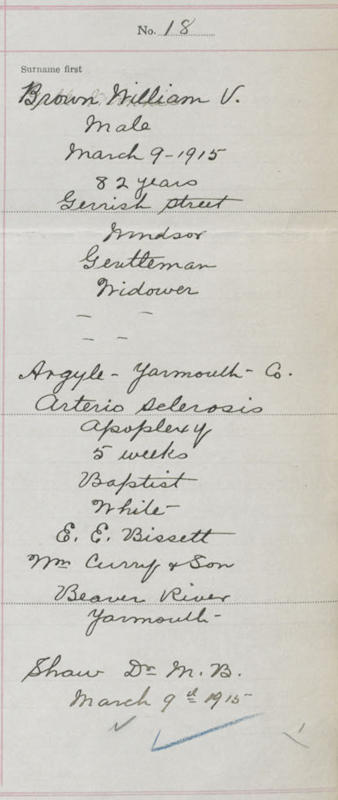 No. 18
Surname first
Brown, William V.
Male
March 9-1915
82 years
Gerrish street
Windsor
Gentleman
Widower
— —
— —
Argyle - Yarmouth - Co.
Arterio sclerosis
Apoplexy
5 weeks
Baptist
White
E. E. Bissett
Wm Curry & Son
Beaver River
Yarmouth -
Shaw Dr M. B.
March 9th 1915